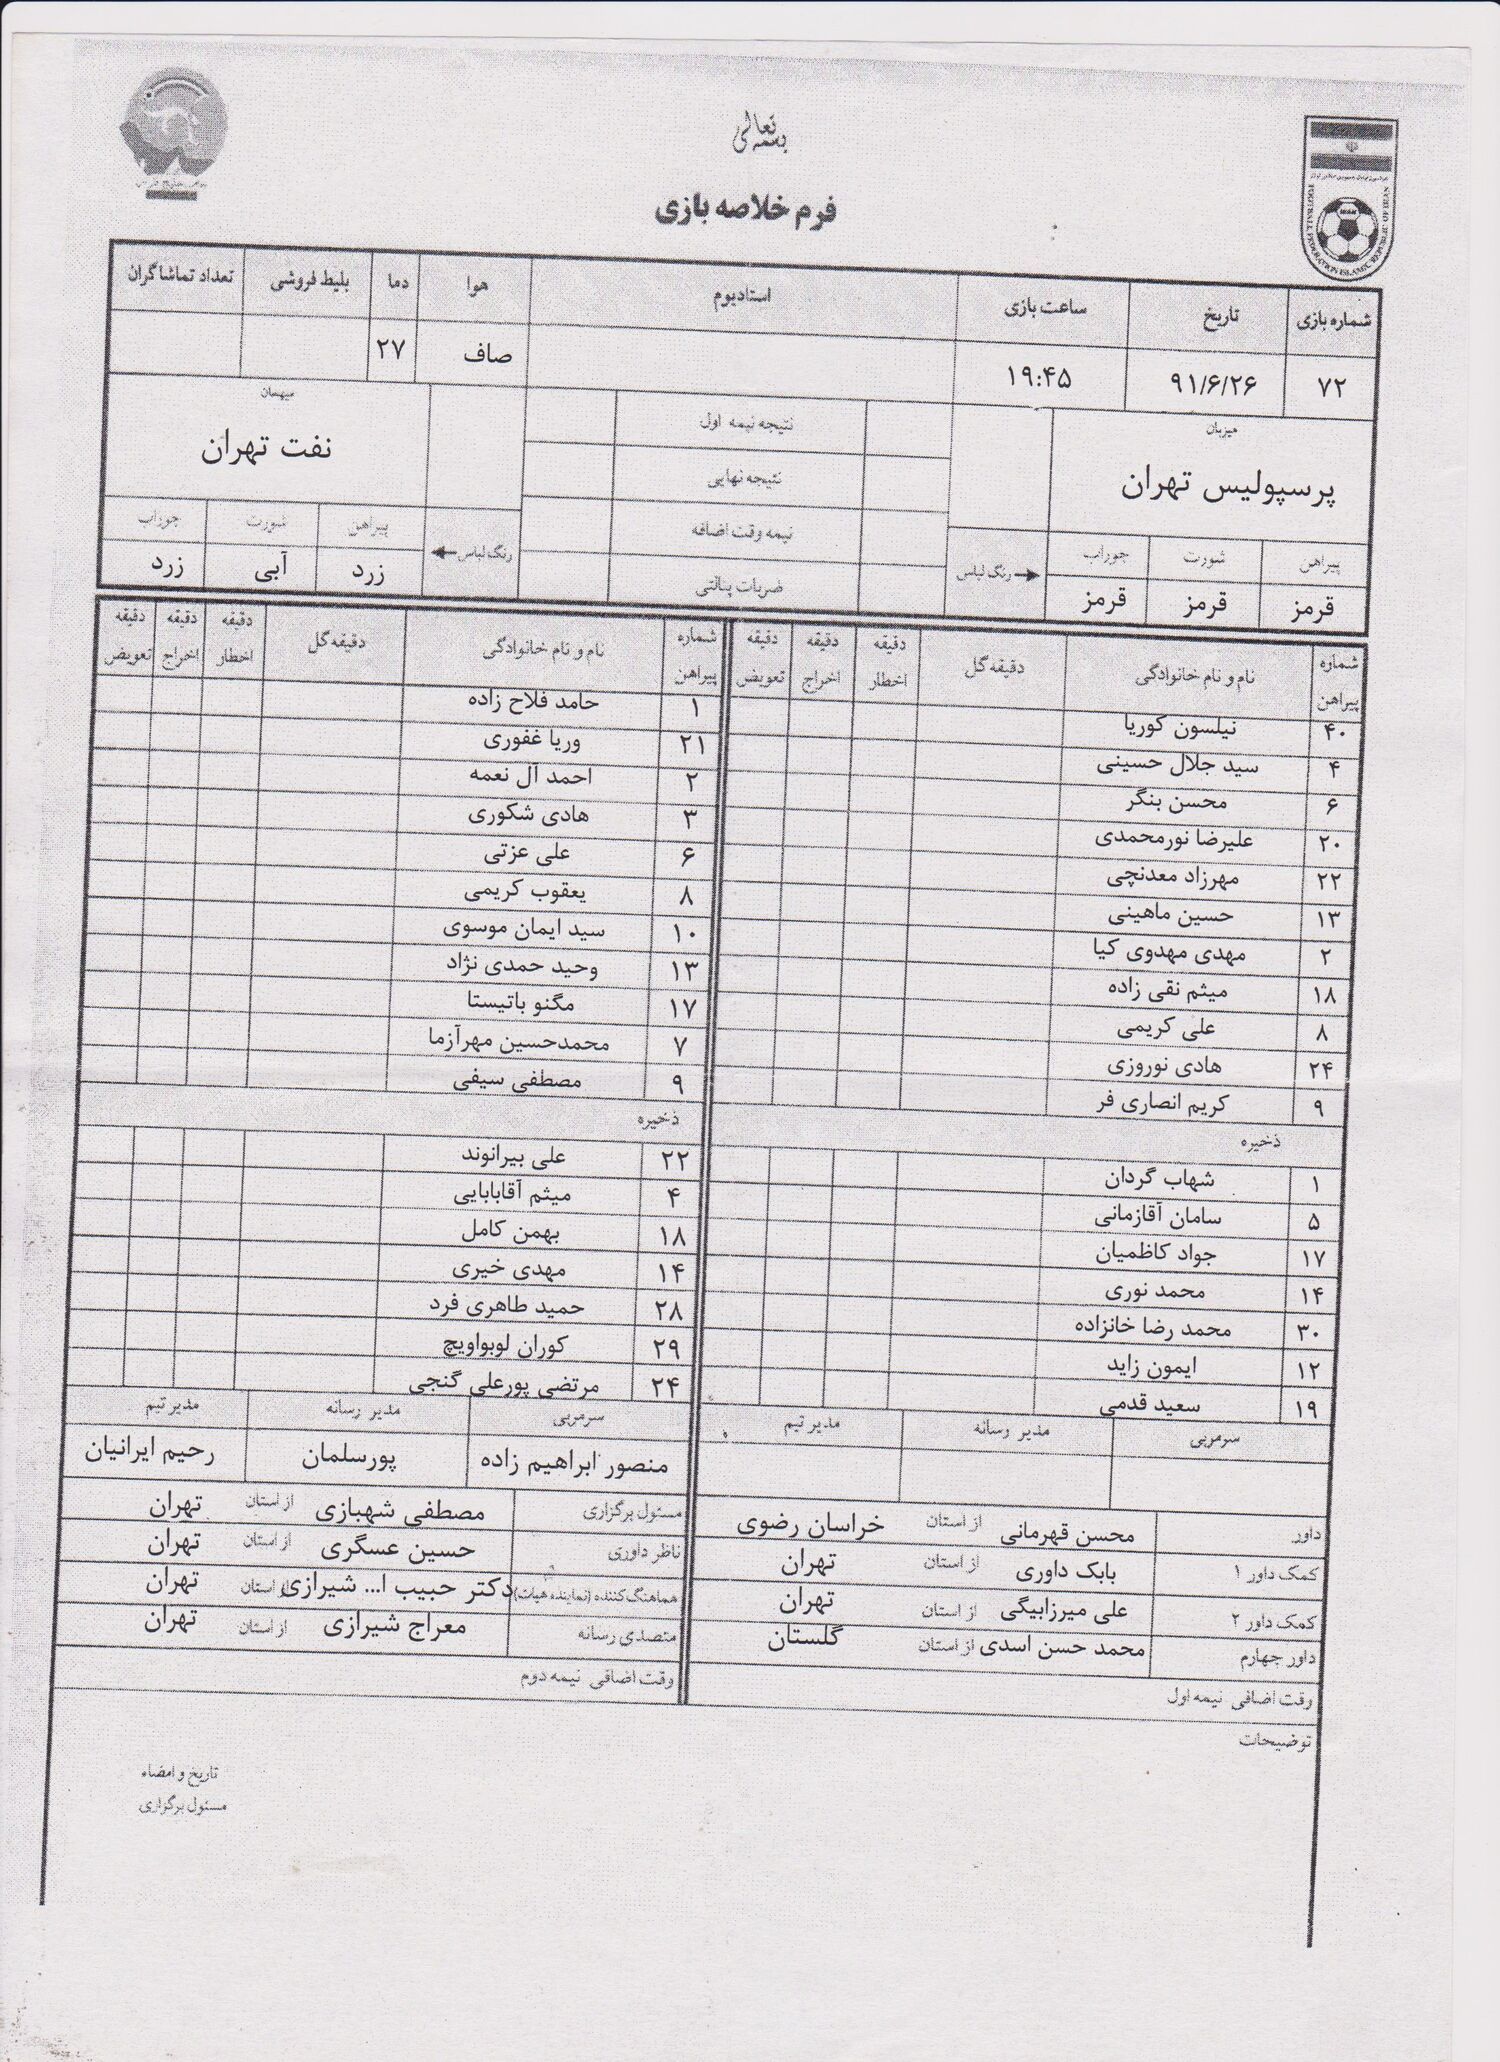 بسمه تعالی
فرم خلاصه بازی
FOOTBALL FEDERATION ISLAMIC REPUBLIC OF IRAN
شماره بازی تاریخ ساعت بازی استادیوم هوا دما بلیط فروشی تعداد تماشاگران
۷۲ ۹۱/۶/۲۶ ۱۹:۴۵ صاف ۲۷
میزبان
پرسپولیس تهران
پیراهن شورت جوراب
قرمز قرمز قرمز
رنگ لباس
نتیجه نیمه اول
نتیجه نهایی
نیمه وقت اضافه
ضربات پنالتی
میهمان
نفت تهران
رنگ لباس
پیراهن شورت جوراب
زرد آبی زرد
شماره پیراهن نام و نام خانوادگی دقیقه گل دقیقه اخطار دقیقه اخراج دقیقه تعویض
۴۰ نیلسون کوریا
۴ سید جلال حسینی
۶ محسن بنگر
۲۰ علیرضا نورمحمدی
۲۲ مهرزاد معدنچی
۱۳ حسین ماهینی
۲ مهدی مهدوی کیا
۱۸ میثم نقی زاده
۸ علی کریمی
۲۴ هادی نوروزی
۹ کریم انصاری فر
ذخیره
۱ شهاب گردان
۵ سامان آقازمانی
۱۷ جواد کاظمیان
۱۴ محمد نوری
۳۰ محمد رضا خانزاده
۱۲ ایمون زاید
۱۹ سعید قدمی
سرمربی مدیر رسانه مدیر تیم
داور محسن قهرمانی از استان خراسان رضوی
کمک داور ۱ بابک داوری از استان تهران
کمک داور ۲ علی میرزابیگی از استان تهران
داور چهارم محمد حسن اسدی از استان گلستان
وقت اضافی نیمه اول
توضیحات
شماره پیراهن نام و نام خانوادگی دقیقه گل دقیقه اخطار دقیقه اخراج دقیقه تعویض
۱ حامد فلاح زاده
۲۱ وریا غفوری
۲ احمد آل نعمه
۳ هادی شکوری
۶ علی عزتی
۸ یعقوب کریمی
۱۰ سید ایمان موسوی
۱۳ وحید حمدی نژاد
۱۷ مگنو باتیستا
۷ محمدحسین مهرآزما
۹ مصطفی سیفی
ذخیره
۲۲ علی بیرانوند
۴ میثم آقابابایی
۱۸ بهمن کامل
۱۴ مهدی خیری
۲۸ حمید طاهری فرد
۲۹ کوران لوبواویچ
۲۴ مرتضی پورعلی گنجی
سرمربی مدیر رسانه مدیر تیم
منصور ابراهیم زاده پورسلمان رحیم ایرانیان
مسئول برگزاری مصطفی شهبازی از استان تهران
ناظر داوری حسین عسگری از استان تهران
هماهنگ کننده (نماینده هیات) دکتر حبیب ا... شیرازی از استان تهران
متصدی رسانه معراج شیرازی از استان تهران
وقت اضافی نیمه دوم
تاریخ و امضاء
مسئول برگزاری